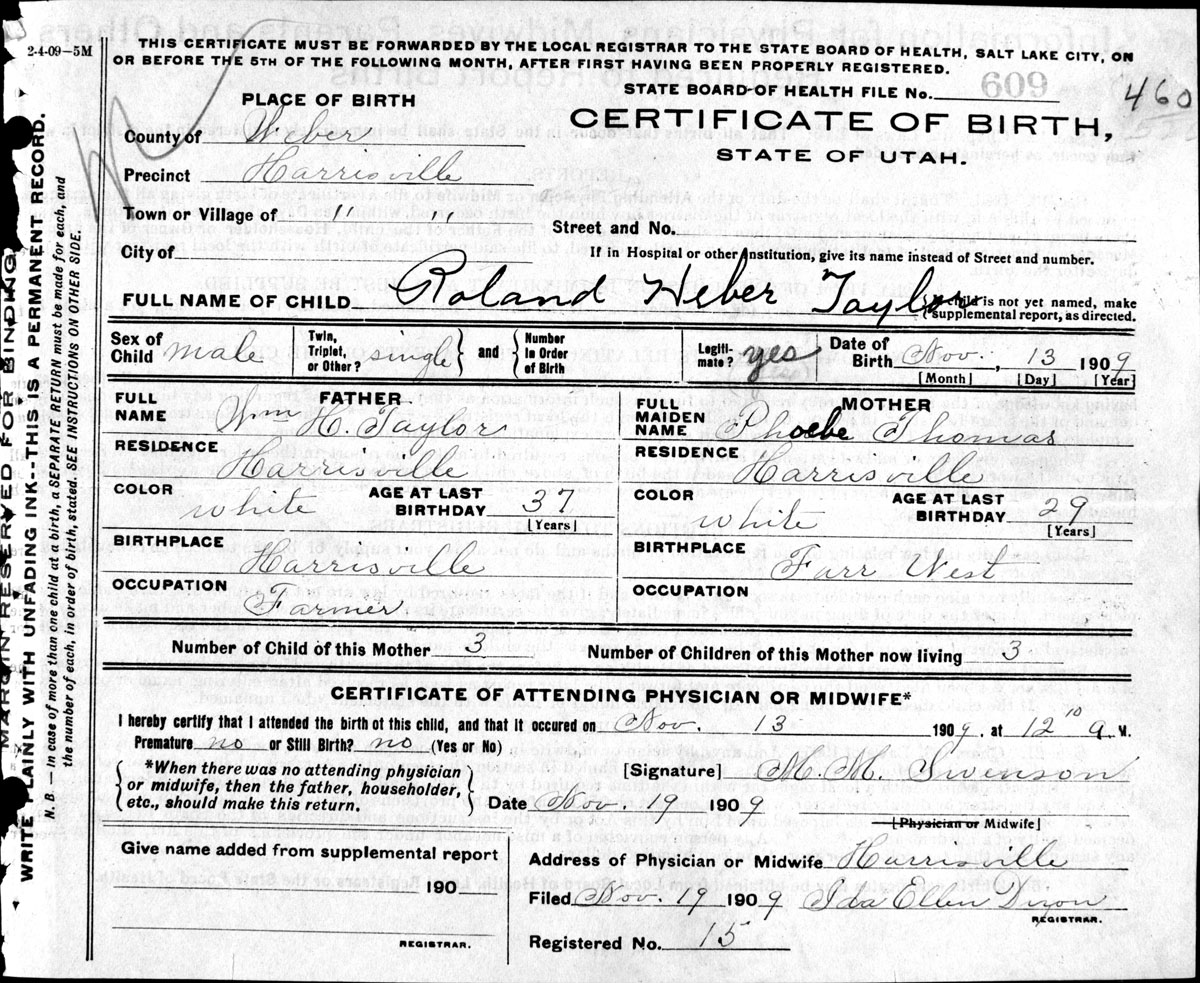 2-4-09-5M
THIS CERTIFICATE MUST BE FORWARDED BY THE LOCAL REGISTRAR TO THE STATE BOARD OF HEALTH, SALT LAKE CITY, ON
OR BEFORE THE 5TH OF THE FOLLOWING MONTH, AFTER FIRST HAVING BEEN PROPERLY REGISTERED.
STATE BOARD OF HEALTH FILE No. 609
460
PLACE OF BIRTH
CERTIFICATE OF BIRTH,
STATE OF UTAH.
County of Weber
Precinct Harrisville
Town or Village of " "
Street and No.
City of
If in Hospital or other Institution, give its name instead of Street and number.
FULL NAME OF CHILD Roland Heber Taylor
child is not yet named, make
supplemental report, as directed.
Sex of Child male
Twin, Triplet, or Other? single and Number in Order of Birth
Legitimate? yes
Date of Birth Nov. 13 1909
[Month] [Day] [Year]
FATHER
FULL NAME Wm H. Taylor
RESIDENCE Harrisville
COLOR white AGE AT LAST BIRTHDAY 37
[Years]
BIRTHPLACE Harrisville
OCCUPATION Farmer
MOTHER
FULL MAIDEN NAME Phoebe Thomas
RESIDENCE Harrisville
COLOR white AGE AT LAST BIRTHDAY 29
[Years]
BIRTHPLACE Farr West
OCCUPATION
Number of Child of this Mother 3 Number of Children of this Mother now living 3
CERTIFICATE OF ATTENDING PHYSICIAN OR MIDWIFE*
I hereby certify that I attended the birth of this child, and that it occured on Nov. 13 1909, at 12 10 a. M.
Premature no or Still Birth? no (Yes or No)
*When there was no attending physician
or midwife, then the father, householder,
etc., should make this return.
[Signature] M. M. Swenson
Date Nov. 19 1909
[Physician or Midwife]
Give name added from supplemental report
190
REGISTRAR.
Address of Physician or Midwife Harrisville
Filed Nov. 19 1909 Ida Ellen Dixon
REGISTRAR.
Registered No. 15
MARGIN RESERVED FOR BINDING
WRITE PLAINLY WITH UNFADING INK--THIS IS A PERMANENT RECORD.
N. B. — in case of more than one child at a birth, a SEPARATE RETURN must be made for each, and
the number of each, in order of birth, stated. SEE INSTRUCTIONS ON OTHER SIDE.